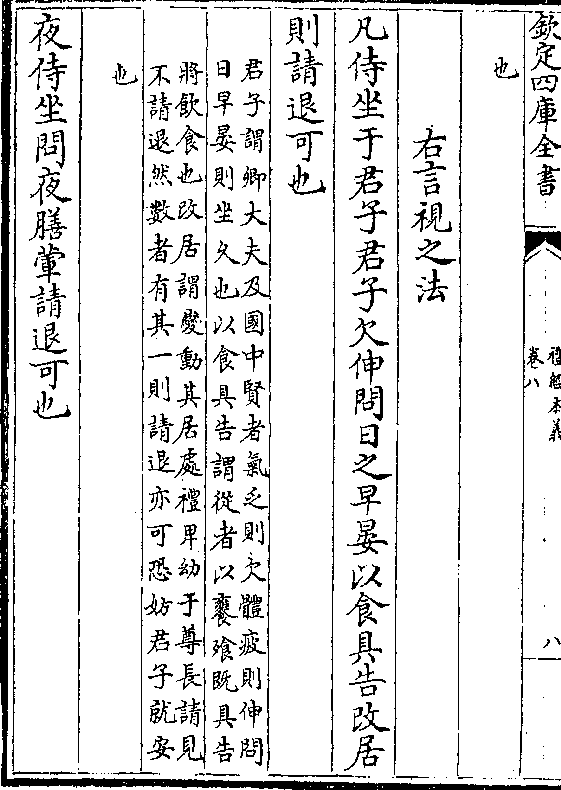 欽定四庫全書
禮經本義
卷八
八
也
右言視之法
凡侍坐于君子君子欠伸問日之早晏以食具告改居
則請退可也
君子謂卿大夫及國中賢者氣乏則欠體疲則伸問
日早晏則坐久也以食具告謂從者以饔飱既具告
將飲食也改居謂變動其居處禮卑幼于尊長請見
不請退然數者有其一則請退亦可恐妨君子就安
也
夜侍坐問夜膳葷請退可也